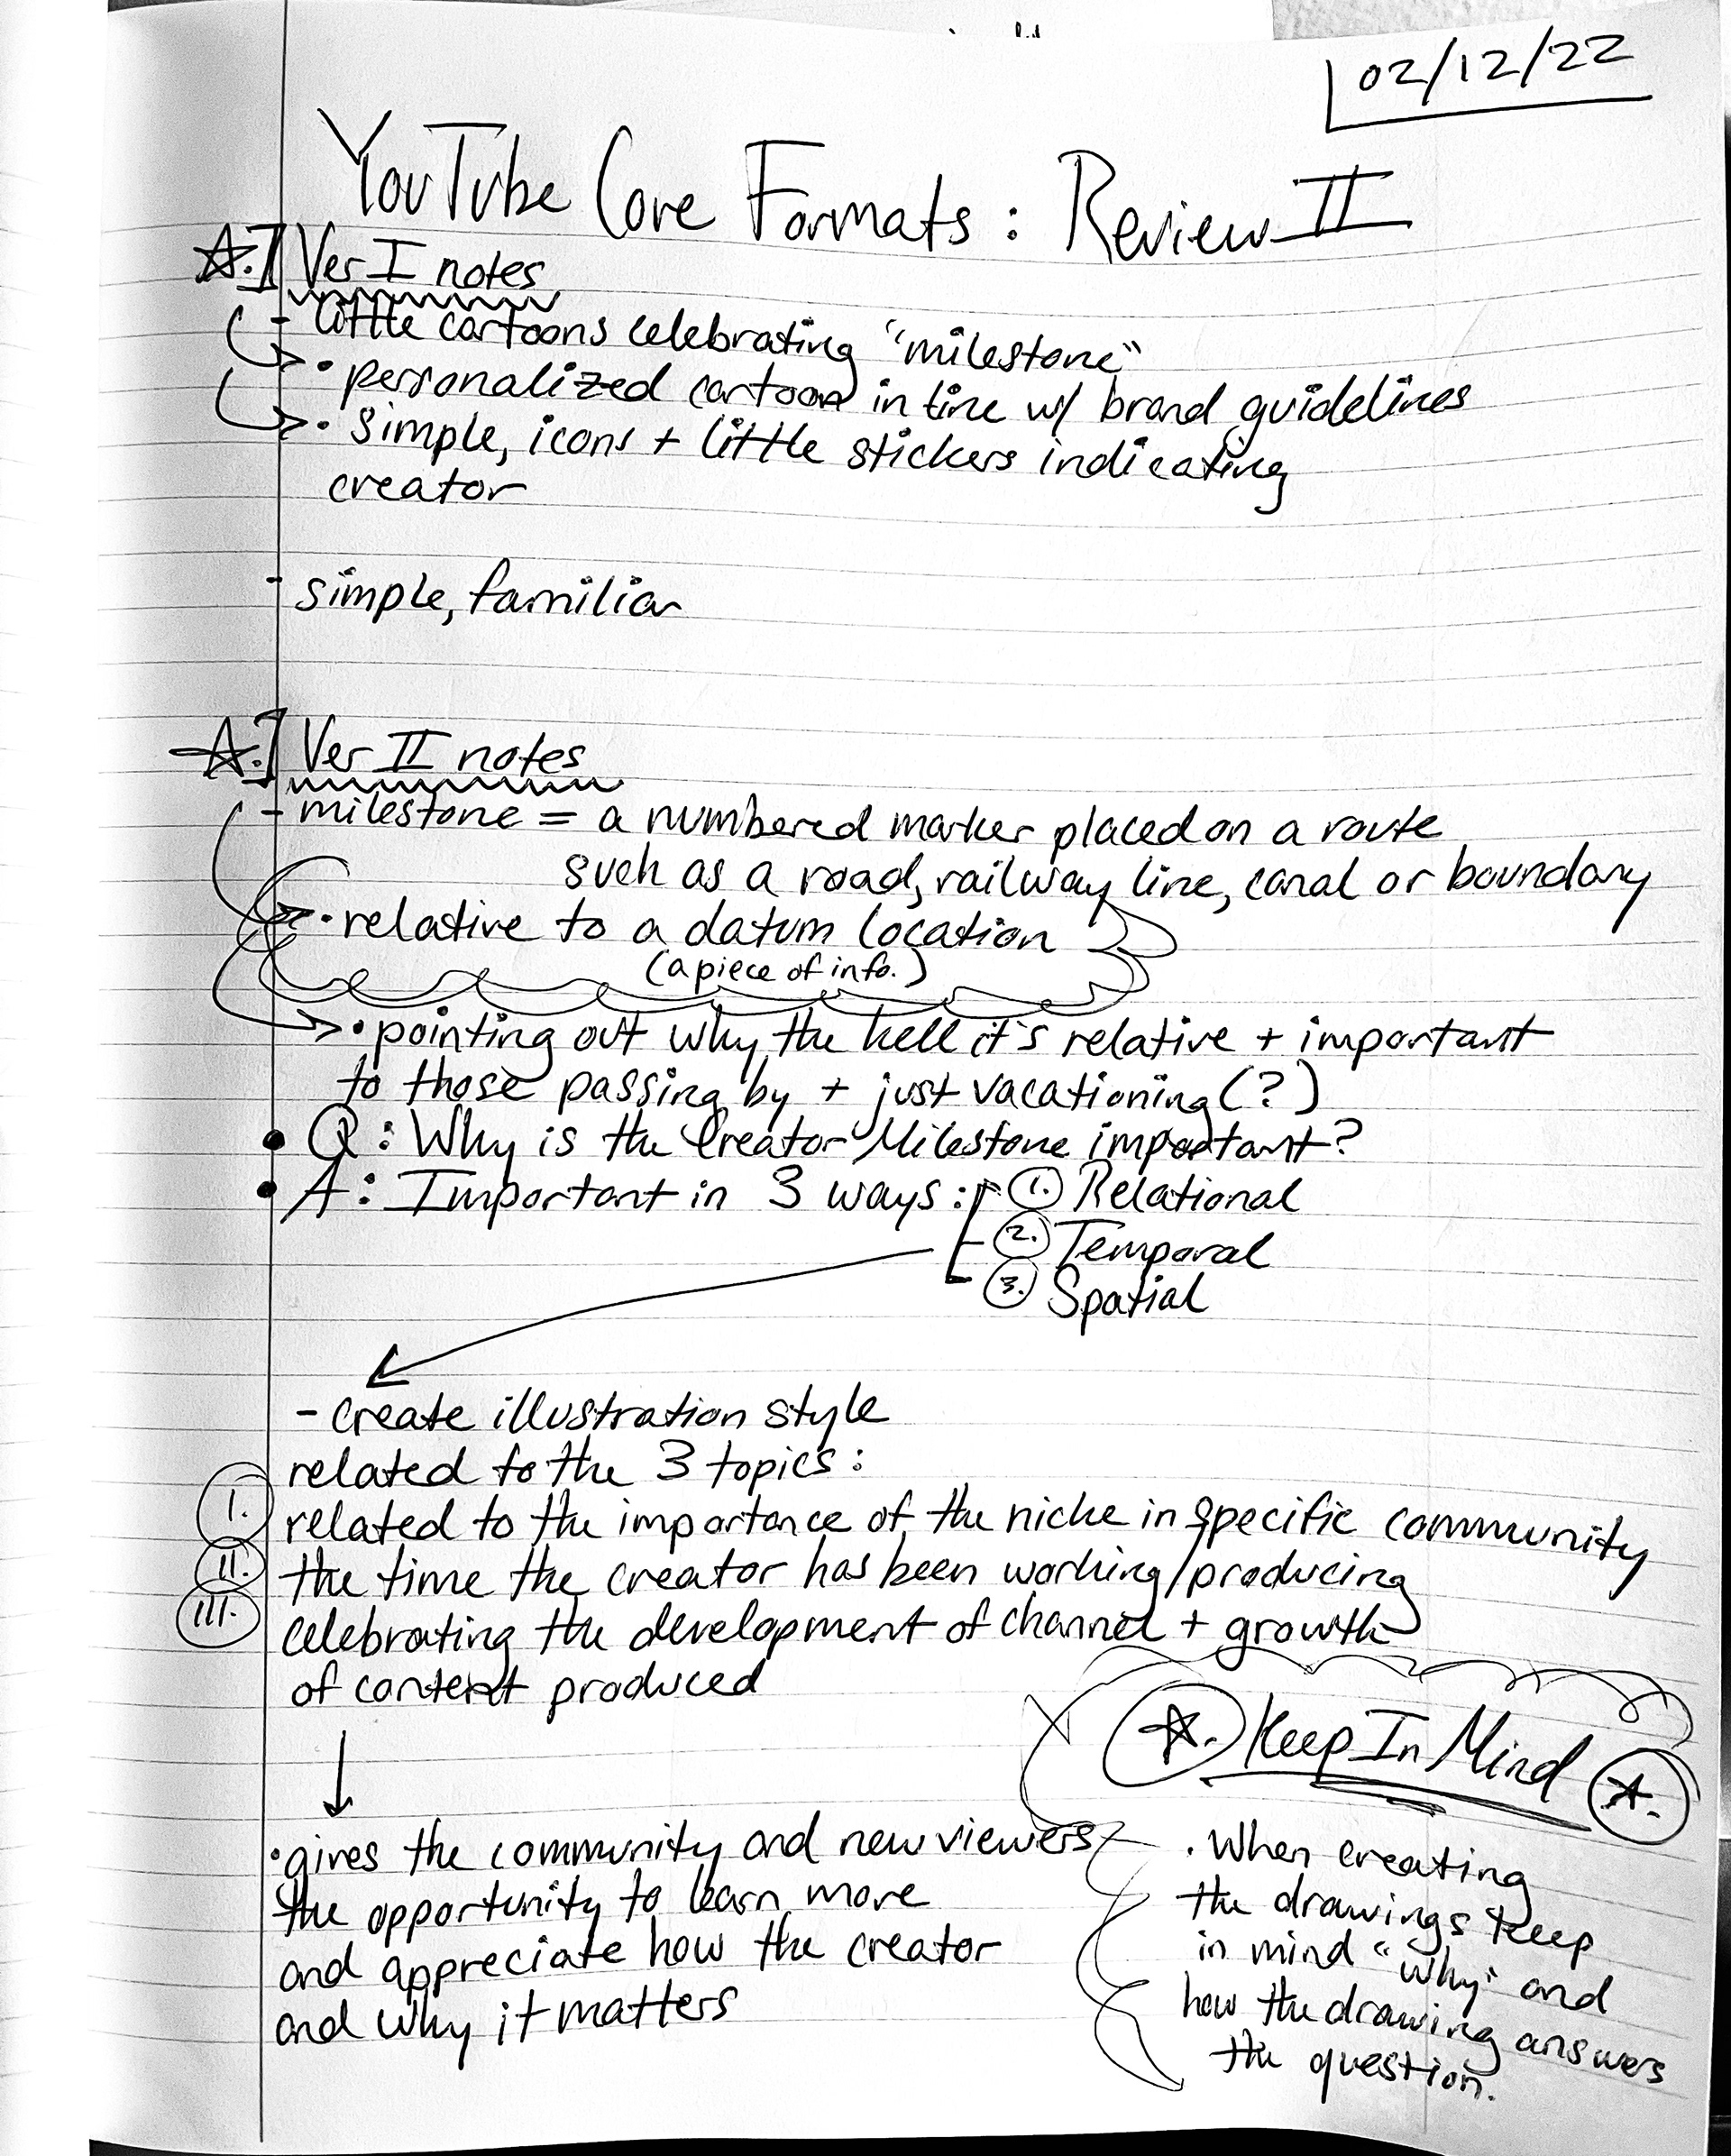 02/12/22
YouTube Core Formats: Review II
☆.] Ver I notes
- little cartoons celebrating "milestone"
• personalized cartoon in line w/ brand guidelines
• simple, icons + little stickers indicating
creator
- simple, familiar
☆.] Ver II notes
- milestone = a numbered marker placed on a route
such as a road, railway line, canal or boundary
• relative to a datum location
(a piece of info.)
• pointing out why the hell it's relative + important
to those passing by + just vacationing (?)
• Q: Why is the Creator Milestone important?
• A: Important in 3 ways: 1. Relational
2. Temporal
3. Spatial
- create illustration style
related to the 3 topics:
I. related to the importance of the niche in specific community
II. the time the creator has been working/producing
III. celebrating the development of channel + growth
of content produced
• gives the community and new viewers
the opportunity to learn more
and appreciate how the creator
and why it matters
☆. Keep In Mind ☆.
• When creating
the drawings keep
in mind "why" and
how the drawing answers
the question.